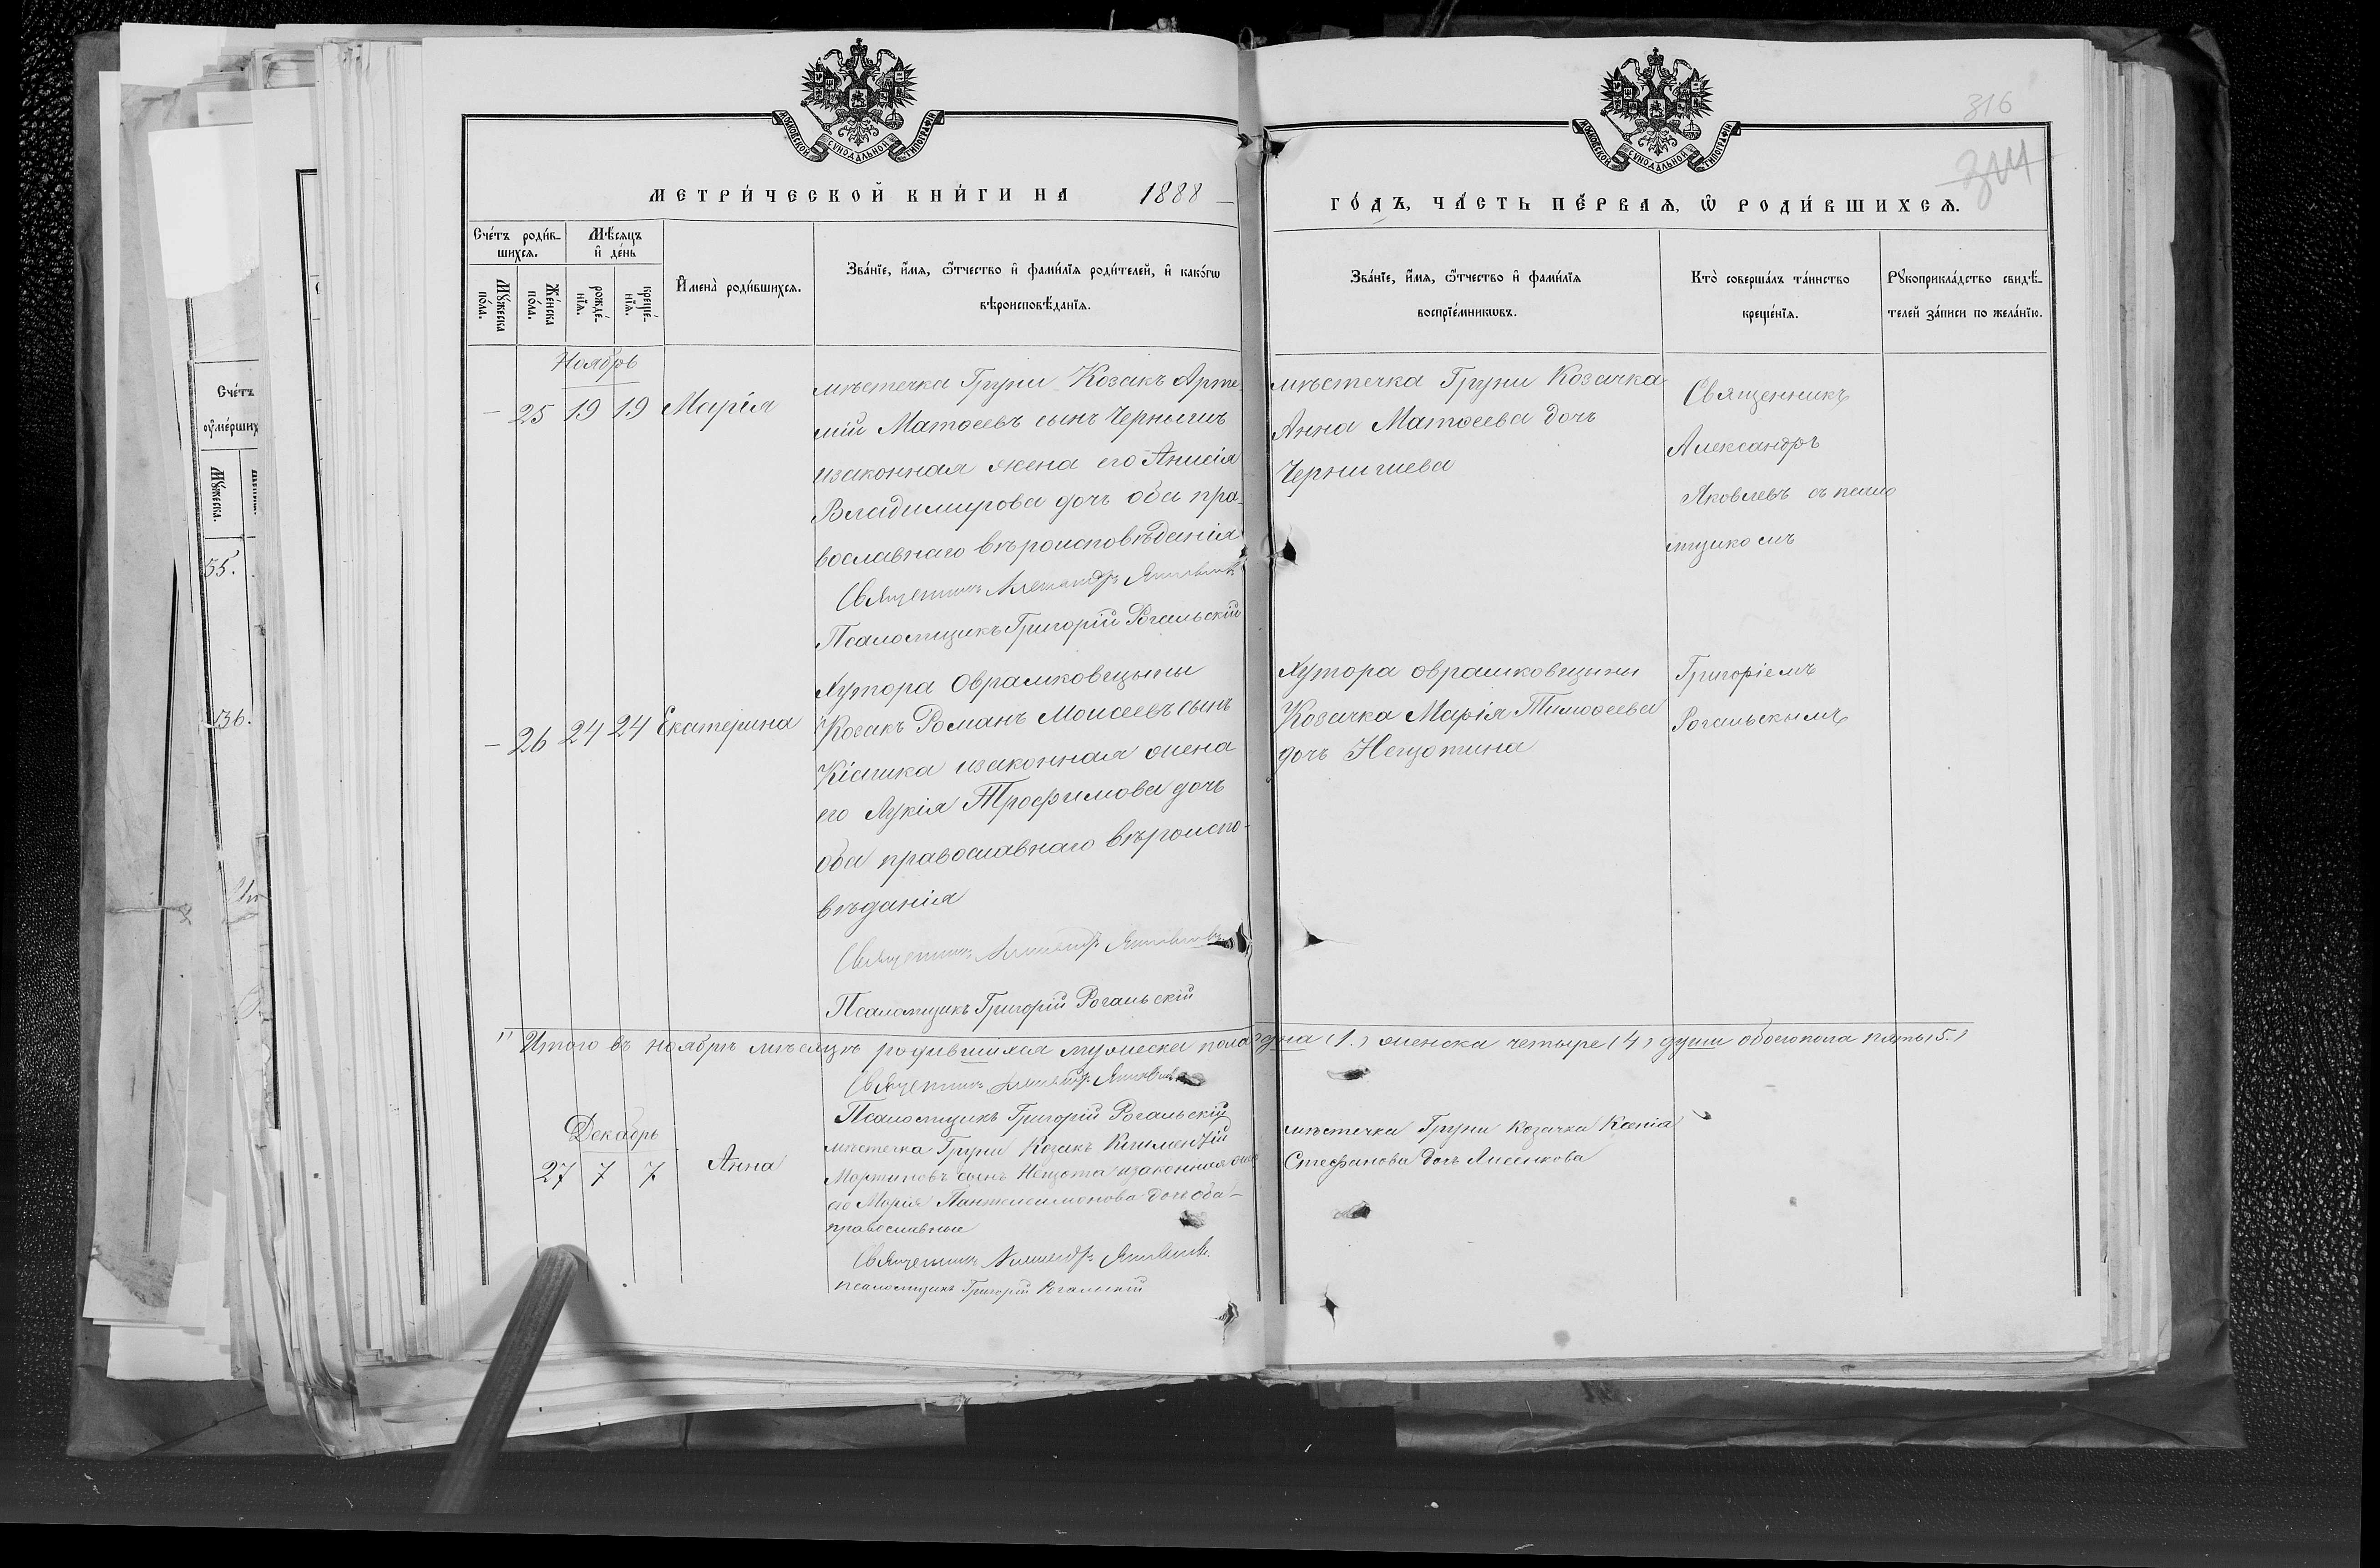 МЕТРИ́ЧЕСКОЙ КНИ́ГИ НА 1888
ГО́ДЪ, ЧА́СТЬ ПЕ́РВАѦ, Ѡ РОДИ́ВШИХСѦ.
316
МОСКОВСКОЙ СѴНОДАЛЬНОЙ ТИПОГРАФІИ
МОСКОВСКОЙ СѴНОДАЛЬНОЙ ТИПОГРАФІИ
Сче́тъ роди́в-
шихсѧ.
Мꙋ́жеска по́ла.
Же́нска по́ла.
Мѣ́сѧцъ
и҆ де́нь
рожде́-
нїѧ.
креще́-
нїѧ.
И҆мена̀ роди́вшихсѧ.
Зва́нїе, и҆́мѧ, ѻ҆́тчество и҆ фами́лїѧ роди́телей, и҆ како́гѡ
вѣроисповѣ́данїѧ.
Зва́нїе, и҆́мѧ, ѻ҆́тчество и҆ фами́лїѧ
воспрїе́мникѡвъ.
Кто̀ соверша́лъ та́инство
креще́нїѧ.
Рꙋкоприкла́дство свидѣ́-
телей за́писи по жела́нїю.
Ноябрь
– 25 19 19 Марія
мѣстечка Груни Козакъ Арте-
мій Матѳеевъ сынъ Чернышъ
изаконная жена его Анисія
Владимирова дочь оба пра-
вославнаго вѣроисповѣданія
Священникъ Александръ Яковлевъ
Псаломщикъ Григорій Рогальскій
мѣстечка Груни Козачка
Анна Матѳеева дочь
Священникъ
Александръ
Яковлевъ съ псало
мщикомъ
– 26 24 24 Екатерина
Хутора Оврамковщыны
Козакъ Романъ Моисеевъ сынъ
Кіашка изаконная жена
его Лукія Трофимова дочь
оба православнаго вѣроиспо-
вѣданія
Священникъ Александръ Яковлевъ
Псаломщикъ Григорій Рогальскій
Хутора оврамковщины
Козачка Марія Тимоѳеева
дочь
Григоріемъ
Рогальскимъ
Итого въ ноябрѣ мѣсяцѣ родившихся мужеска пола одна (1.) женска четыре (4) души обоего пола пять (5.)
Священникъ Александръ Яковлевъ
Псаломщикъ Григорій Рогальскій
Декабрь
27 7 7 Анна
мѣстечка Груни Козакъ Климентій
Мартиновъ сынъ Нещота изаконная жена
его Марія Пантелеимонова дочь оба-
православные
Священникъ Александръ Яковлевъ.
псаломщикъ Григорій Рогальскій
мѣстечка Груни Козачка Ксенія
Стефанова дочь Лисенкова
Сче́тъ
ꙋ҆ме́рших
Мꙋ́жеска.
55.
136.